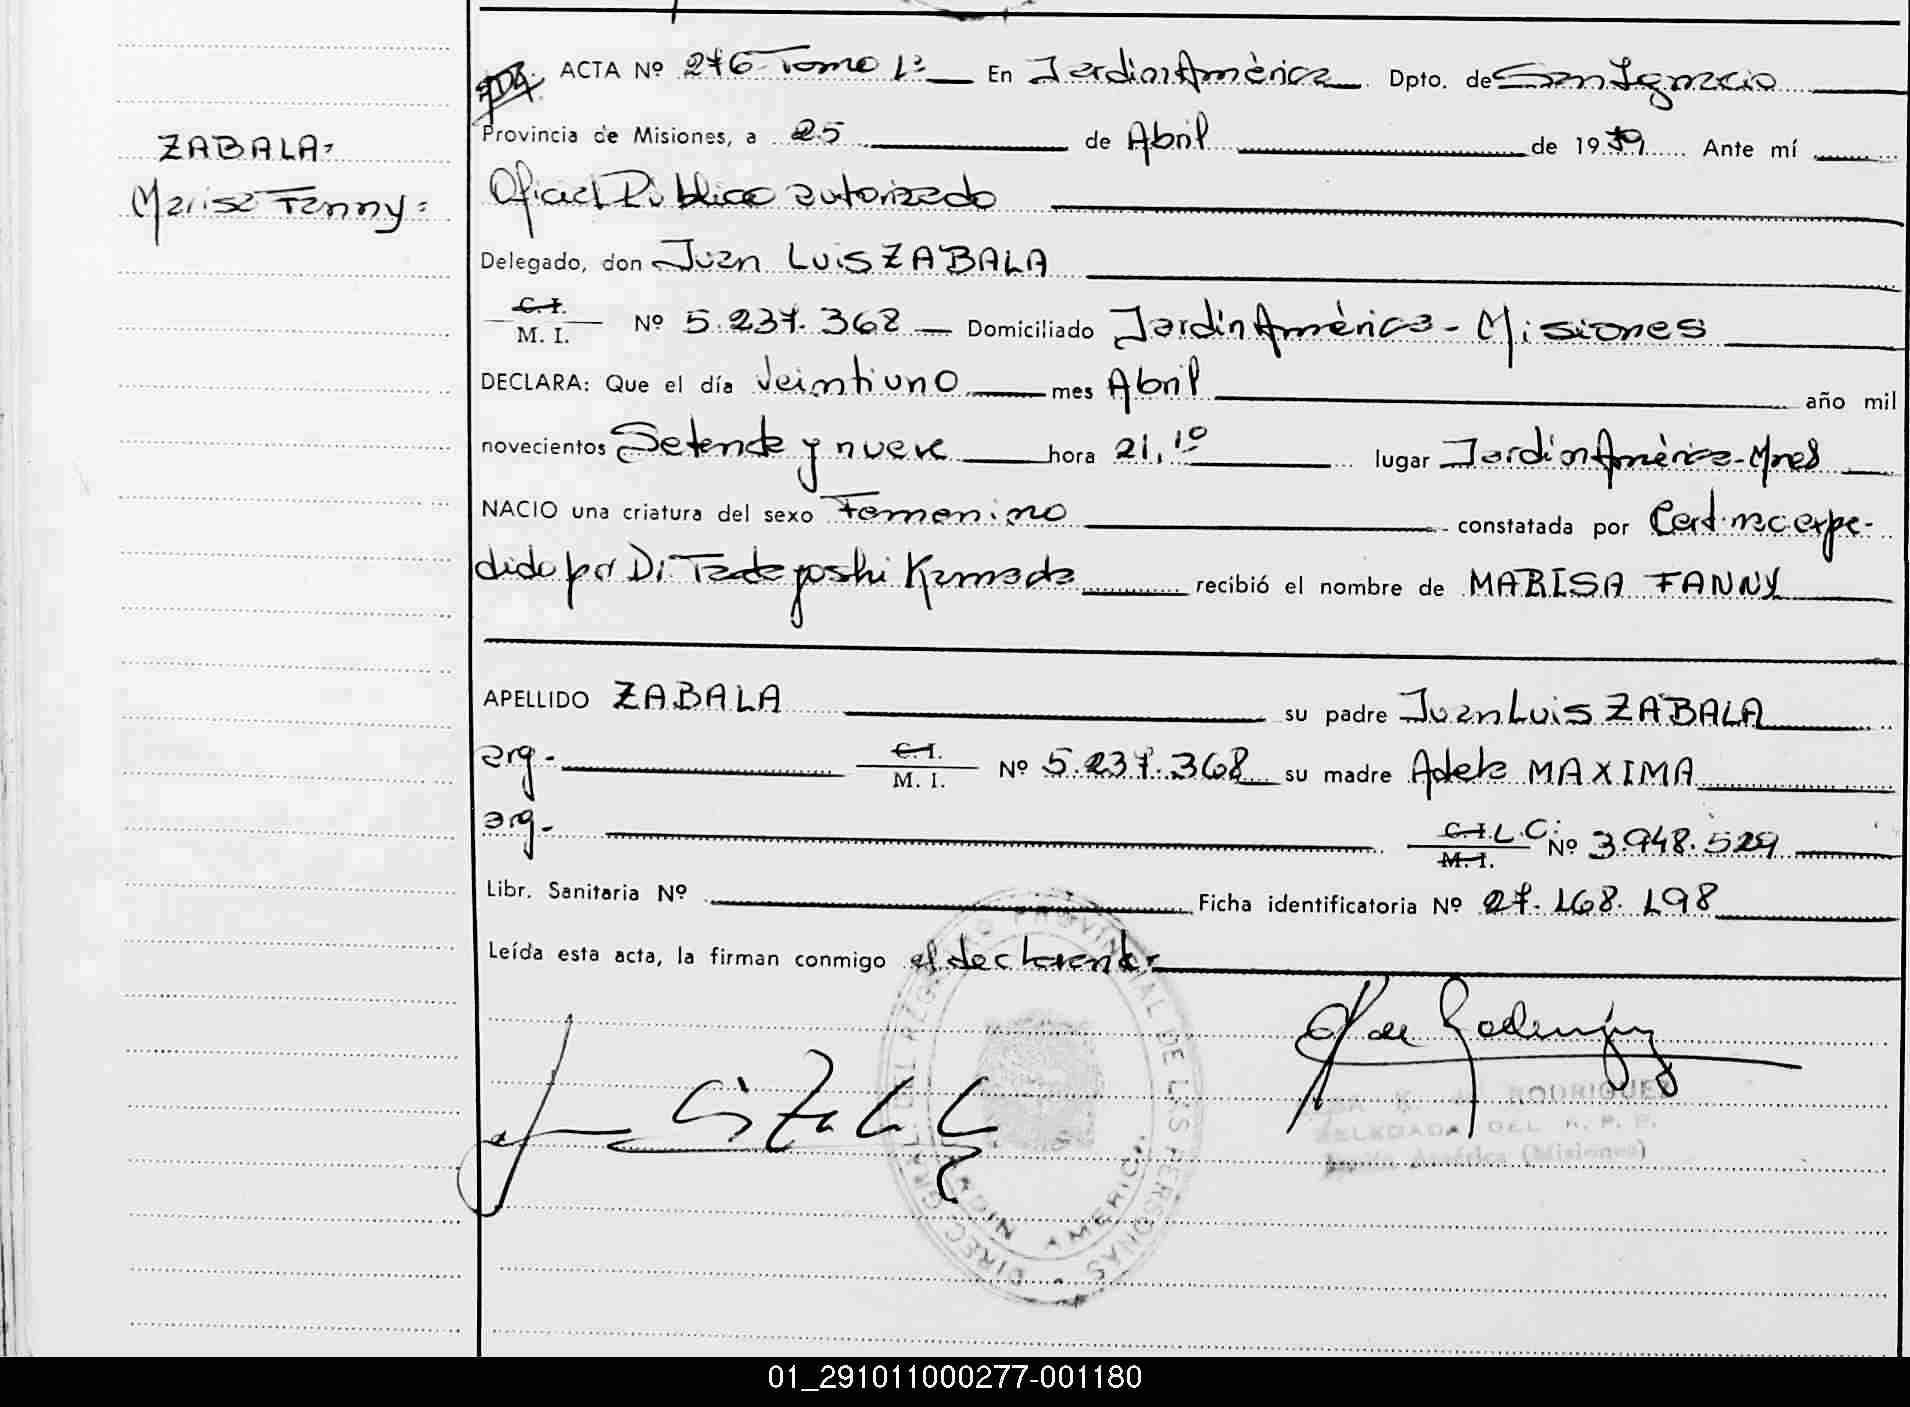 ZABALA=
Marisa Fanny=
ACTA Nº 276 Tomo 1º En Jardin América Dpto. de San Ignacio
Provincia de Misiones, a 25 de Abril de 1979 Ante mí
Oficial Público autorizado
Delegado, don Juan Luis ZABALA
C.I.
M. I. Nº 5.237.368 — Domiciliado Jardín América - Misiones
DECLARA: Que el día Veintiuno mes Abril año mil
novecientos Setenta y nueve hora 21,10 lugar Jardín América - Mnes
NACIO una criatura del sexo Femenino constatada por Cert. nac. expe-
dido por Dr Tadayoshi Kamada recibió el nombre de MARISA FANNY
APELLIDO ZABALA su padre Juan Luis ZABALA
arg- C.I.
M. I. Nº 5.237.368 su madre Adela MAXIMA
arg- C.I. L.C.
M.I. Nº 3.948.529
Libr. Sanitaria Nº Ficha identificatoria Nº 27.168.198
Leída esta acta, la firman conmigo el declarante
DIREC. GRAL. DEL REGISTRO PROVINCIAL DE LAS PERSONAS
AMERICA
RODRIGUEZ
DELEGADA DEL R. P. P.
Jardín América (Misiones)
01_291011000277-001180